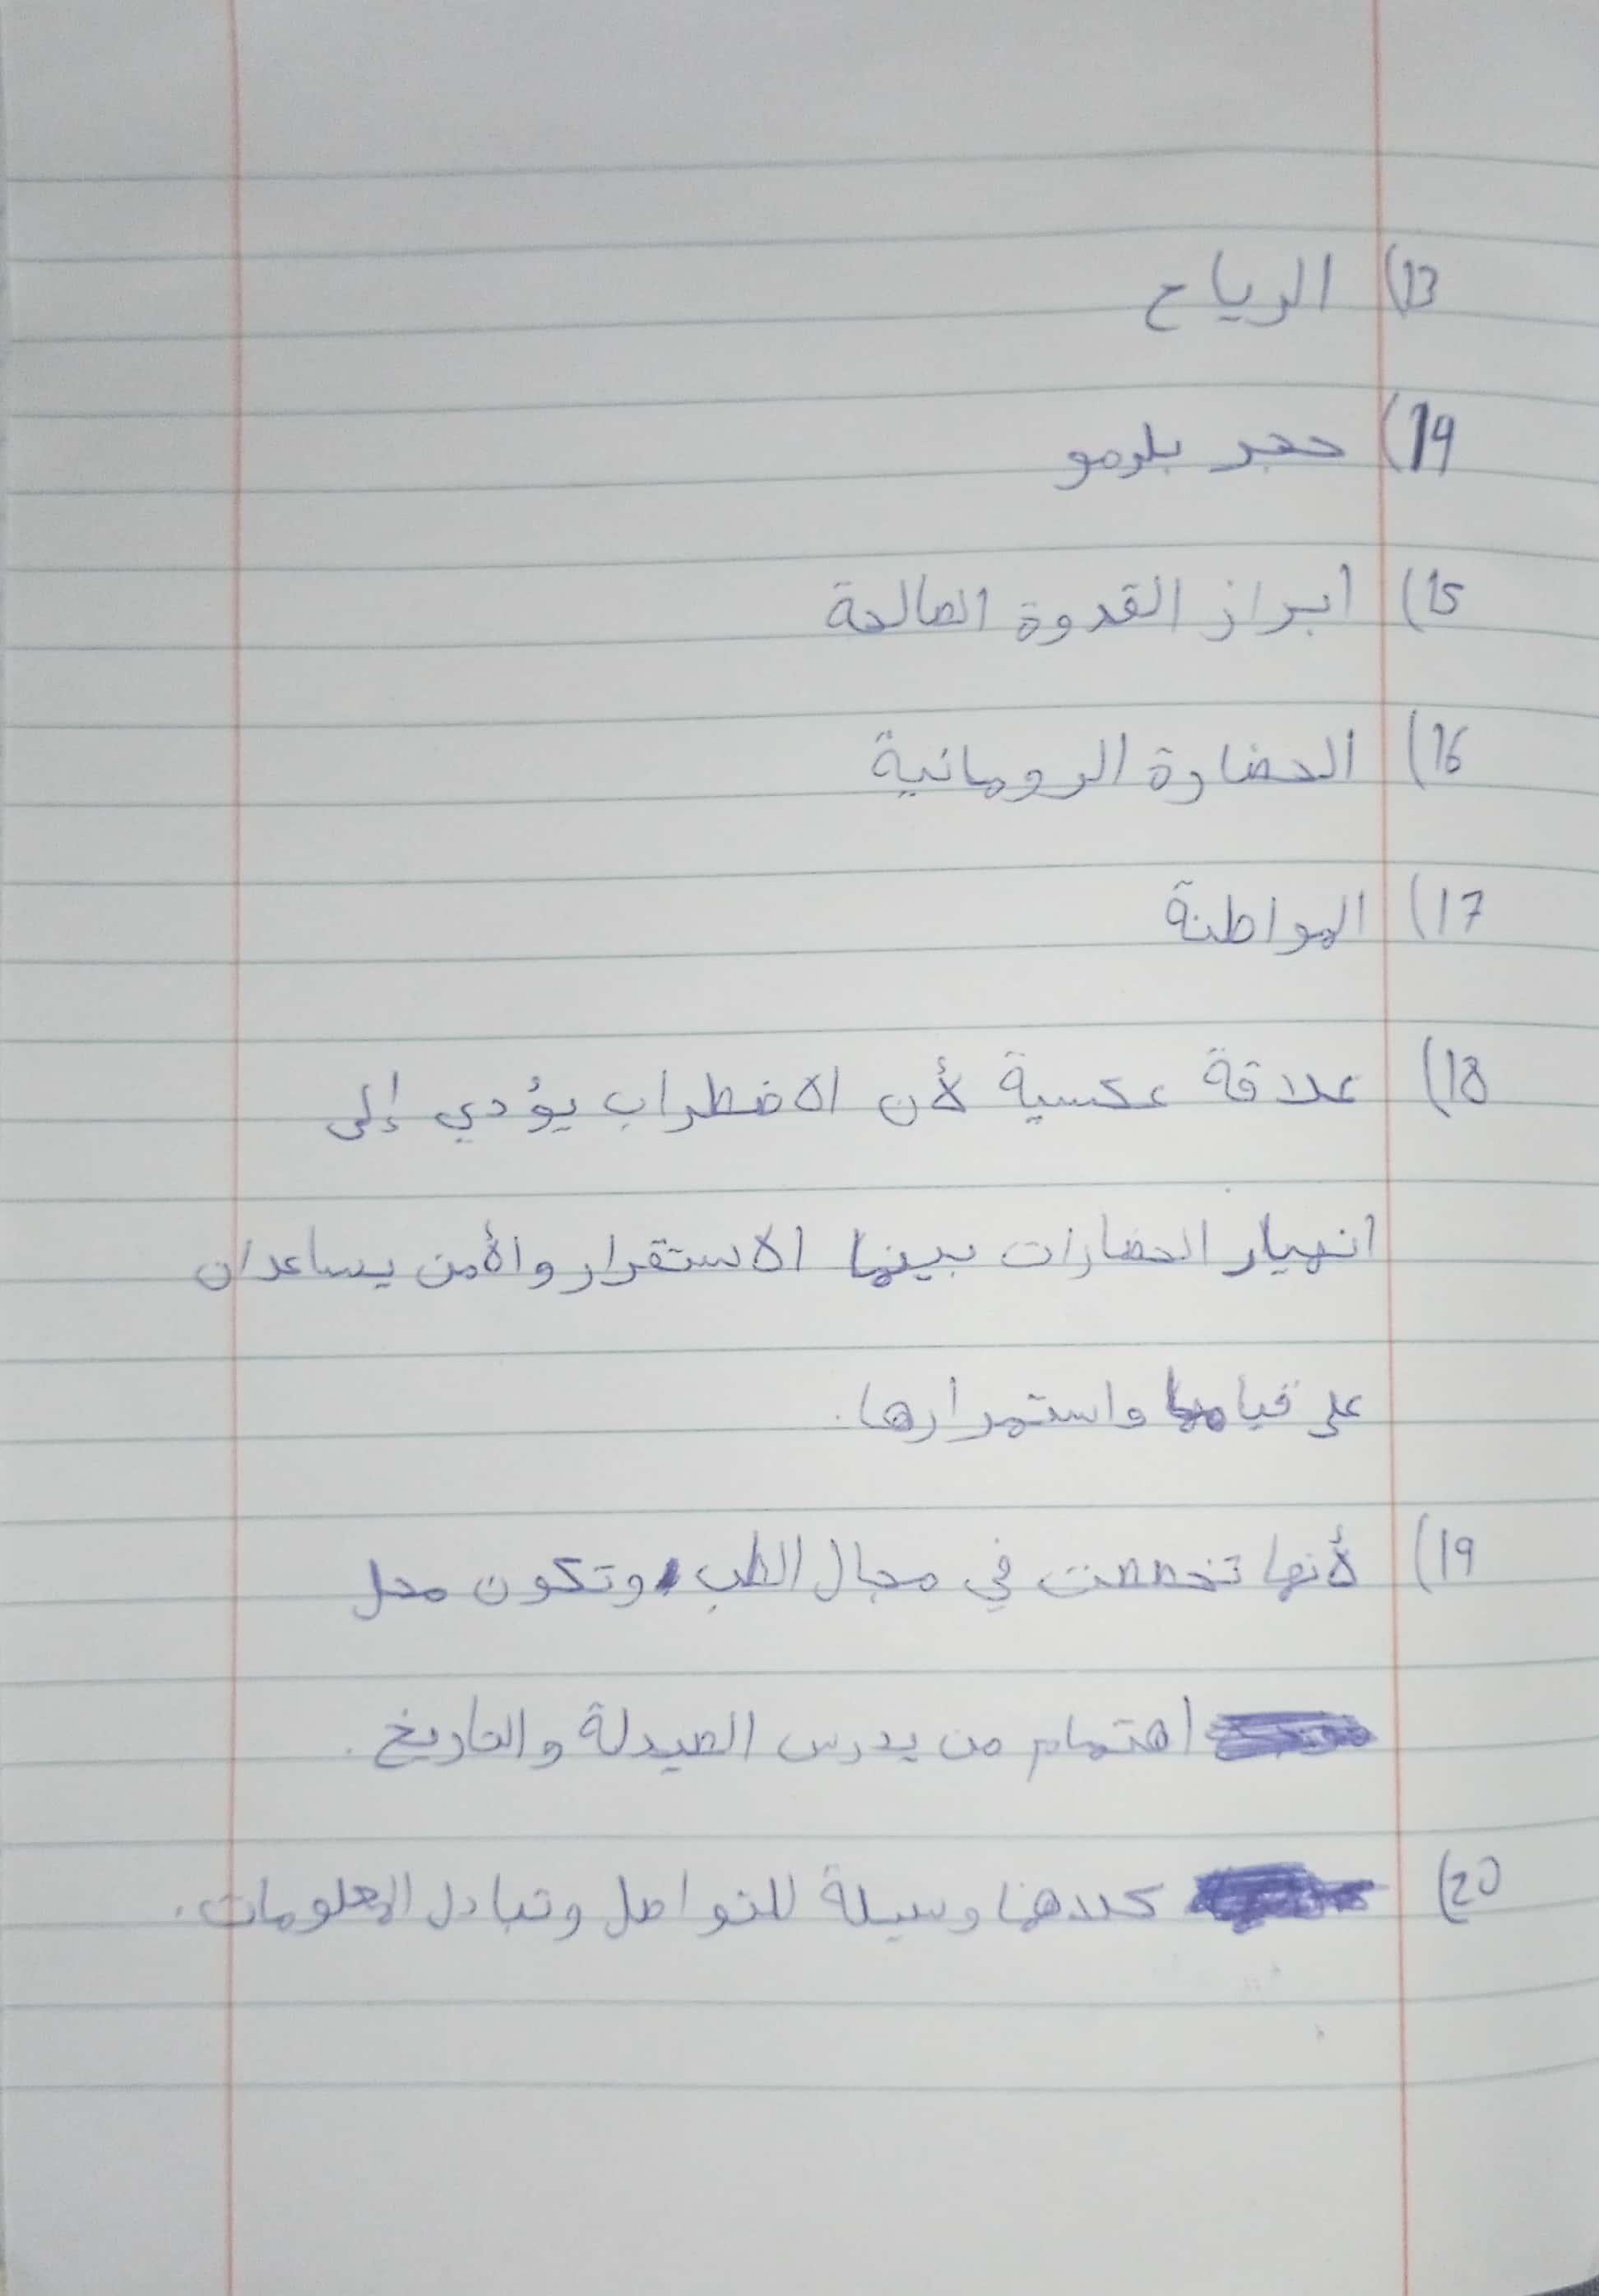 13) الرياح
14) حجر بلرمو
15) ابراز القدوة الصالحة
16) الحضارة الرومانية
17) المواطنة
18) علاقة عكسية لأن الاضطراب يؤدي إلى
انهيار الحضارات بينما الاستقرار والأمن يساعدان
على قيامها واستمرارها.
19) لأنها تخصصت في مجال الطب وتكون محل
اهتمام من يدرس الصيدلة والتاريخ.
20) كلاهما وسيلة للتواصل وتبادل المعلومات.